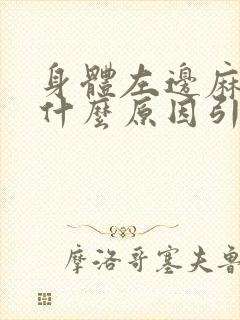 身體左邊麻
什麼原因引
摩洛哥塞夫魯